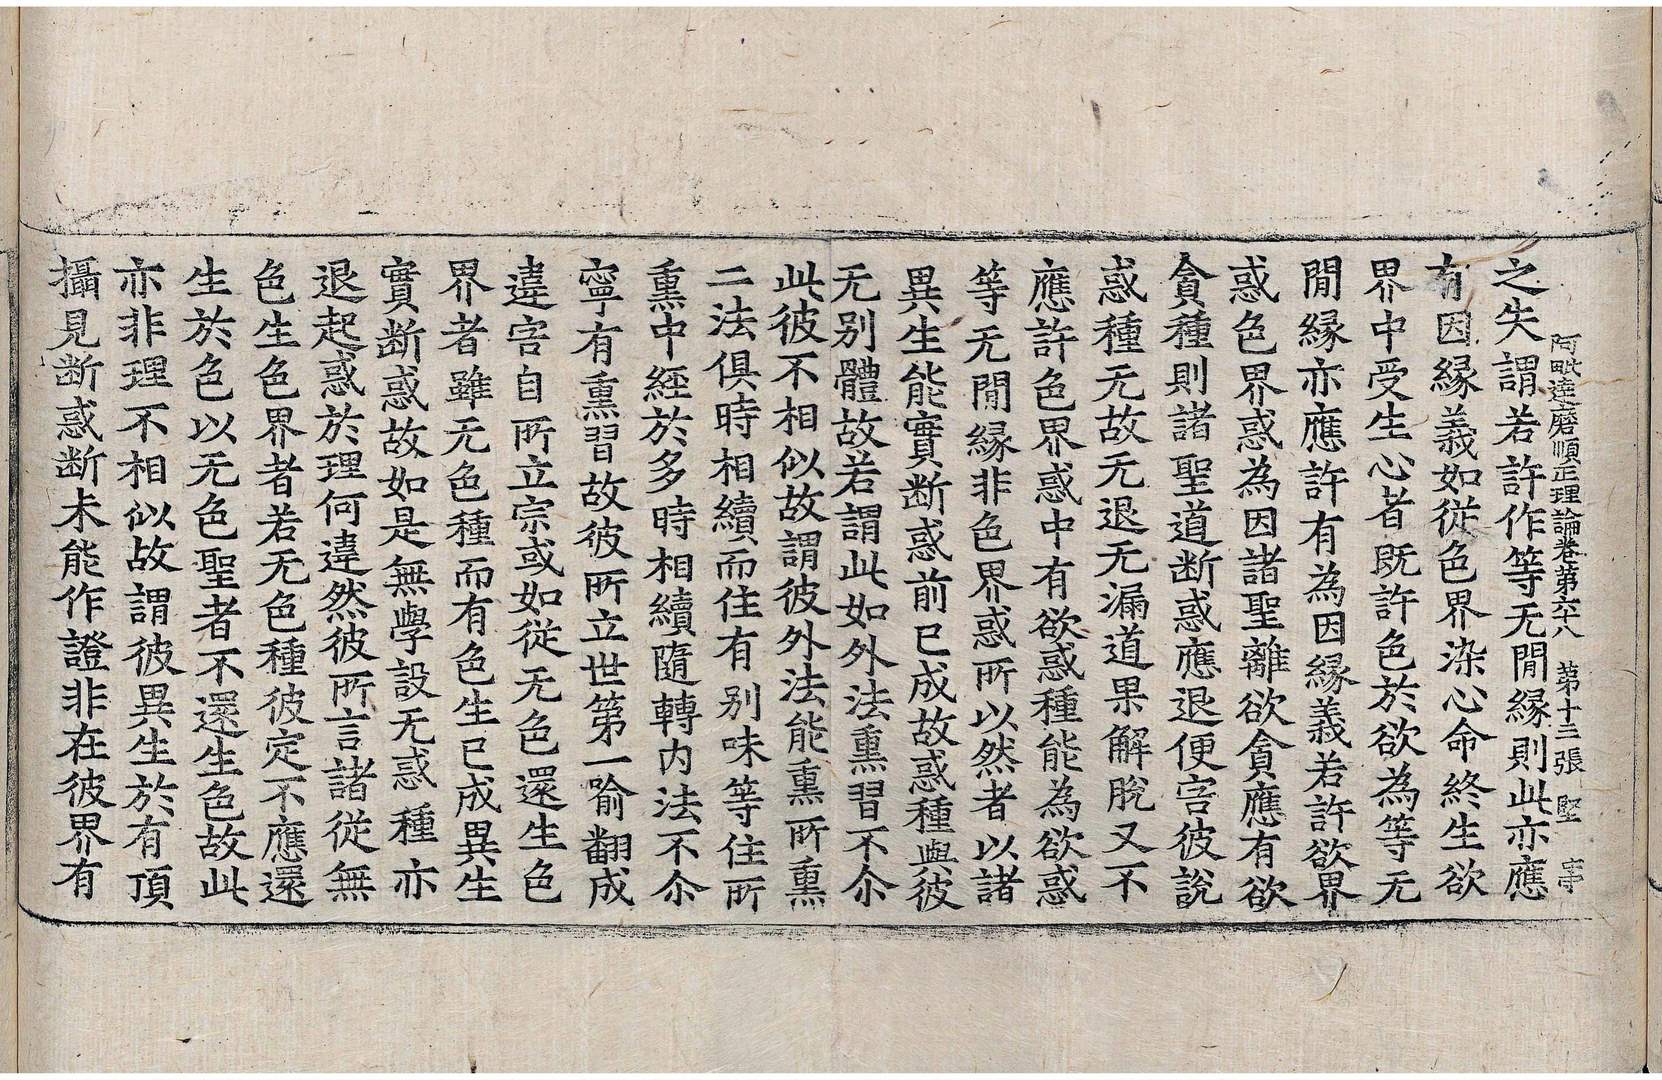 阿毗達磨順正理論卷第六十八 第十三張 堅
之失謂若許作等无閒緣則此亦應
有因緣義如從色界染心命終生欲
界中受生心者既許色於欲為等无
閒緣亦應許有為因緣義若許欲界
惑色界惑為因諸聖離欲貪應有欲
貪種則諸聖道断惑應退便害彼說
惑種无故无退无漏道果解脫又不
應許色界惑中有欲惑種能為欲惑
等无閒緣非色界惑所以然者以諸
異生能實断惑前已成故惑種與彼
无別體故若謂此如外法熏習不尒
此彼不相似故謂彼外法能熏所熏
二法俱時相續而住有別味等住所
熏中經於多時相續隨轉內法不尒
寧有熏習故彼所立世第一喻翻成
違害自所立宗或如從无色還生色
界者雖无色種而有色生已成異生
實断惑故如是無學設无惑種亦
退起惑於理何違然彼所言諸從無
色生色界者若无色種彼定不應還
生於色以无色聖者不還生色故此
亦非理不相似故謂彼異生於有頂
攝見断惑断未能作證非在彼界有